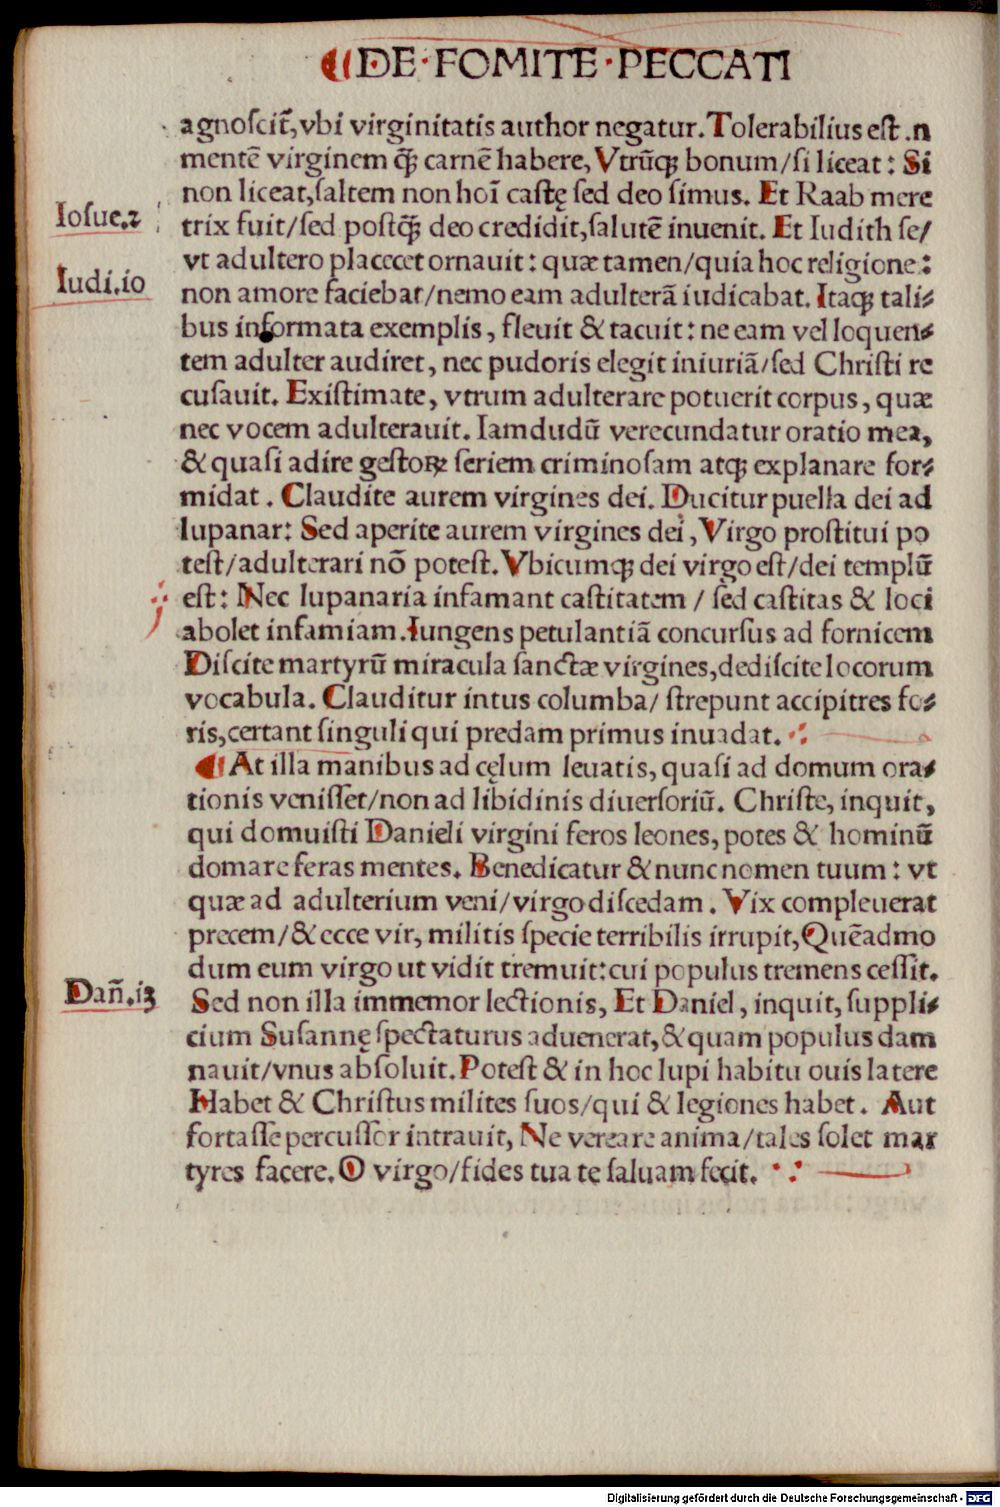 ¶DE·FOMITE·PECCATI
agnoſcit̄, vbi virginitatis author negatur. Tolerabilius eſt .n
mentē virginem q̄ꝫ carnē habere, Vtrūqꝫ bonum/ſi liceat: Si
non liceat, ſaltem non hoī caſtę ſed deo ſimus. Et Raab mere
Ioſue.2
trix fuit/ſed poſtq̄ꝫ deo credidit, ſalutē inuenit. Et Iudith ſe/
vt adultero placecet ornauit: quæ tamen/quia hoc religione:
Iudi.io
non amore faciebat/nemo eam adulterā iudicabat. Itaqꝫ tali⸗
bus informata exemplis, fleuit & tacuit: ne eam vel loquen⸗
tem adulter audiret, nec pudoris elegit iniuriā/ſed Chriſti re
cuſauit. Exiſtimate, vtrum adulterare potuerit corpus, quæ
nec vocem adulterauit. Iamdudū verecundatur oratio mea,
& quaſi adire geſtoꝝ ſeriem criminoſam atqꝫ explanare for⸗
midat. Claudite aurem virgines dei. Ducitur puella dei ad
lupanar: Sed aperite aurem virgines dei, Virgo proſtitui po
teſt/adulterari nō poteſt. Vbicumqꝫ dei virgo eſt/dei templū
eſt: Nec lupanaria infamant caſtitatem / ſed caſtitas & loci
abolet infamiam. Iungens petulantiā concurſus ad fornicem
Diſcite martyrū miracula ſanctæ virgines, dediſcite locorum
vocabula. Clauditur intus columba/ ſtrepunt accipitres fo⸗
ris, certant ſinguli qui predam primus inuadat.
¶At illa manibus ad cęlum leuatis, quaſi ad domum ora⸗
tionis veniſſet/non ad libidinis diuerſoriū. Chriſte, inquit,
qui domuiſti Danieli virgini feros leones, potes & hominū
domare feras mentes. Benedicatur & nunc nomen tuum: vt
quæ ad adulterium veni/virgo diſcedam. Vix compleuerat
precem/& ecce vir, militis ſpecie terribilis irrupit, Quēadmo
dum eum virgo ut vidit tremuit: cui populus tremens ceſſit.
Dan̄.i3
Sed non illa immemor lectionis, Et Daniel, inquit, ſuppli⸗
cium Suſannę ſpectaturus aduenerat, & quam populus dam
nauit/vnus abſoluit. Poteſt & in hoc lupi habitu ouis latere
Habet & Chriſtus milites ſuos/qui & legiones habet. Aut
fortaſſe percuſſor intrauit, Ne vereare anima/tales ſolet mar
tyres facere. O virgo/fides tua te ſaluam fecit.
Digitalisierung gefördert durch die Deutsche Forschungsgemeinschaft - DFG